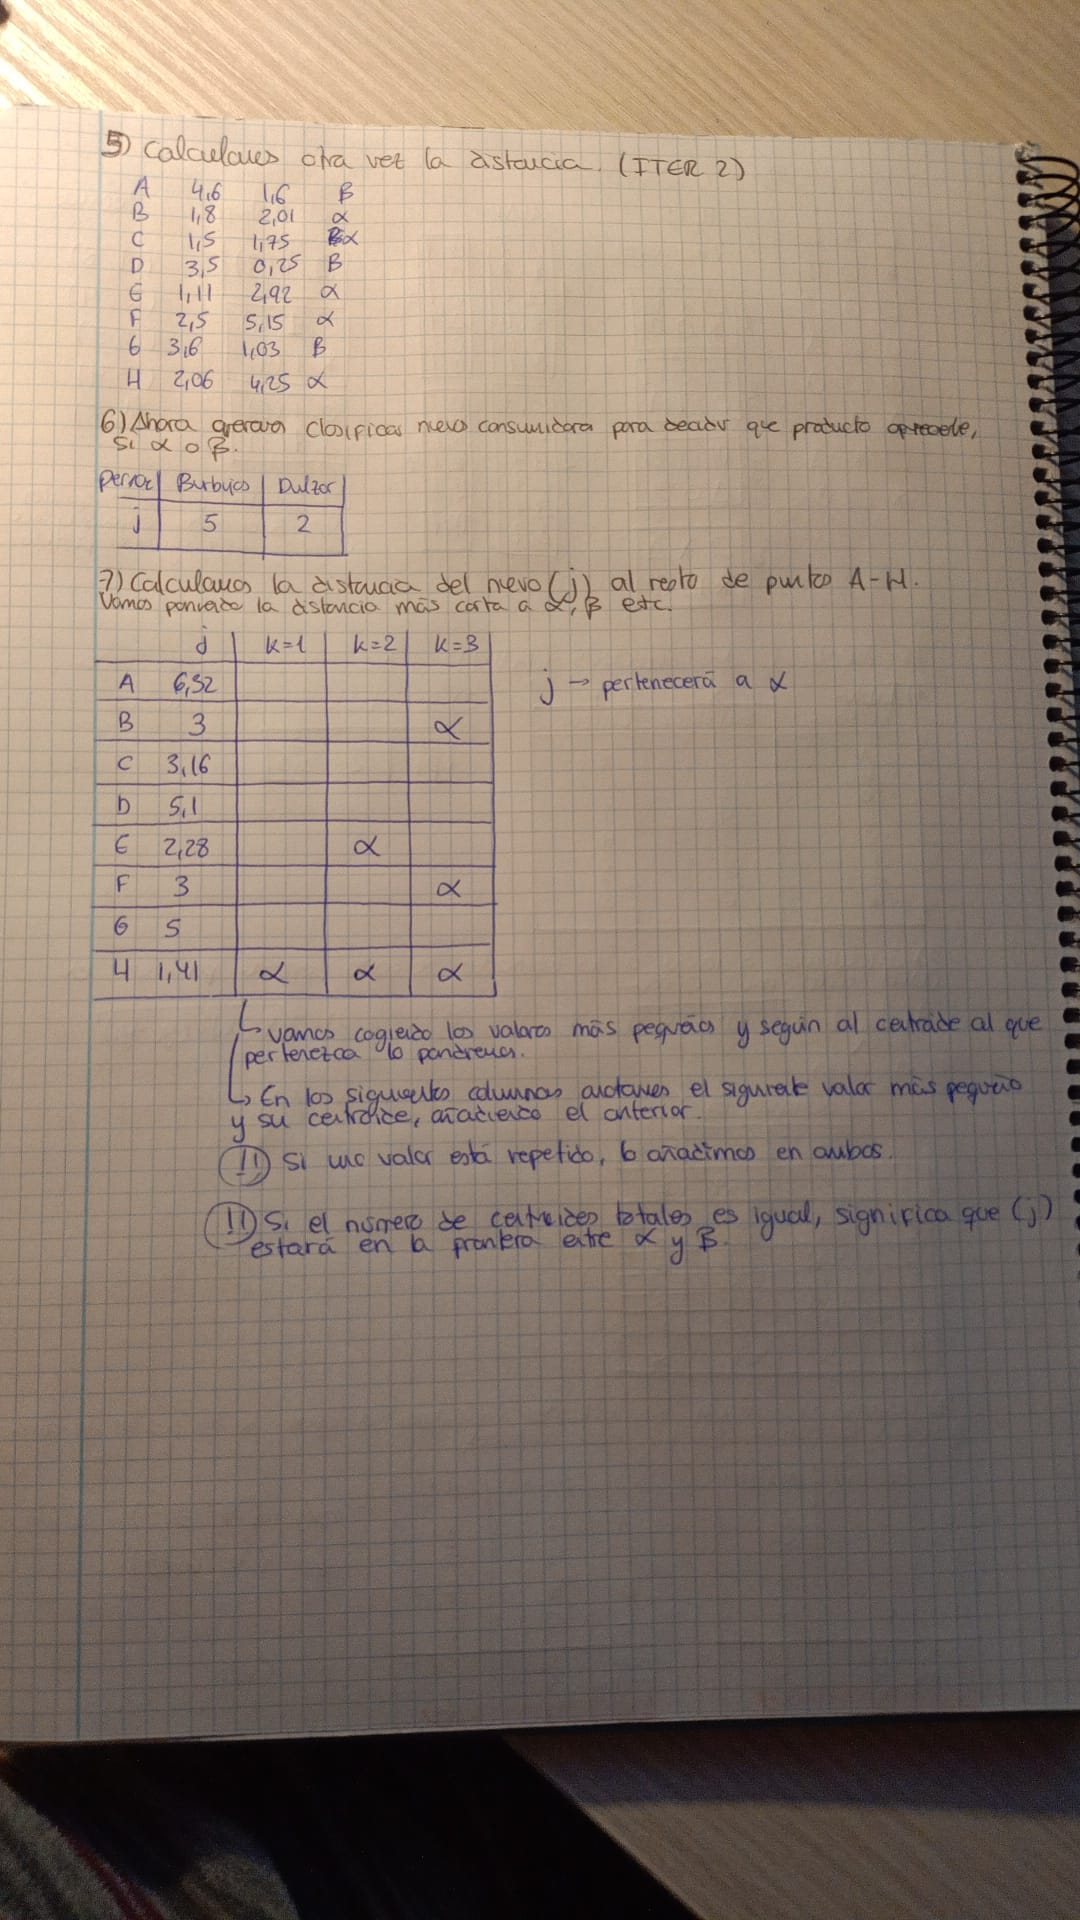 5) Calculamos otra vez la distancia. (ITER 2)
A 4,6 1,6 B
B 1,8 2,01 α
C 1,5 1,75 α
D 3,5 0,25 B
E 1,11 2,92 α
F 2,5 5,15 α
G 3,6 1,03 B
H 2,06 4,25 α
6) Ahora queremos clasificar nuevo consumidora para decidir que producto
si α o β.
Burbujas Dulzor
j 5 2
7) Calculamos la distancia del nuevo (j) al resto de puntos A-H.
Vamos poniendo la distancia más corta a α, β etc.
j k=1 k=2 k=3
A 6,32
j → pertenecerá a α
B 3 α
C 3,16
D 5,1
E 2,28 α
F 3 α
G 5
H 1,41 α α α
↳ vamos cogiendo los valores más pequeños y según al centroide al que
pertenezca lo pondremos.
↳ En los siguientes columnas anotamos el siguiente valor más pequeño
y su centroide, añadiendo el anterior.
!! Si un valor está repetido, lo añadimos en ambos.
!! Si el número de centroides totales es igual, significa que (j)
estará en la frontera entre α y β.